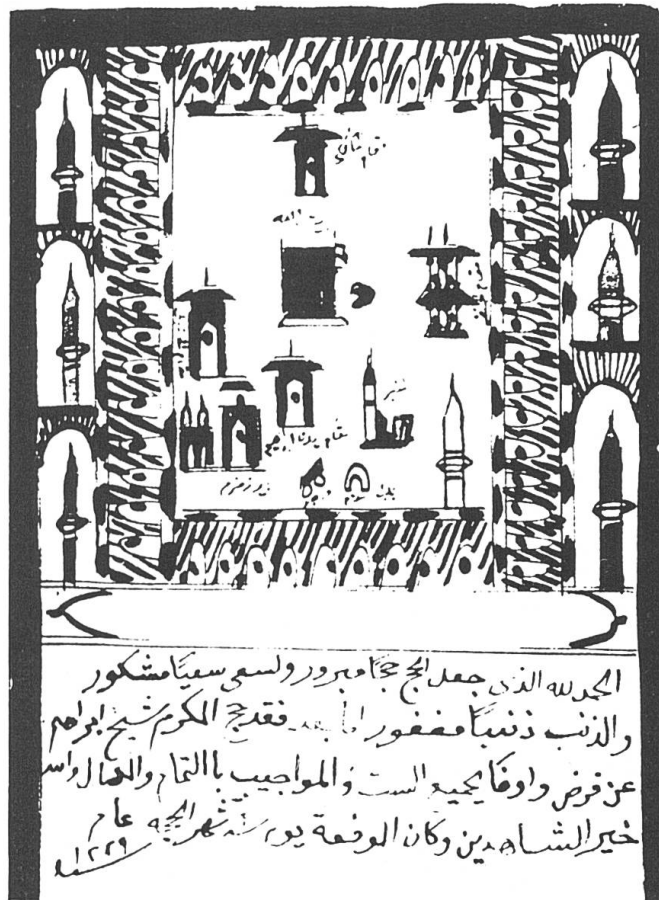 مقام
بيت الله
منبر
مقام سيدنا ابراهيم
زمزم
باب
الحمد لله الذي جعل الحج حجًا مبرور ولسعى سعيًا مشكور
والذنب ذنبًا مغفور اما بعد فقد حج المكرم شيخ ابراهيم
عن فرض واوفا بجميع الست والمواجيب باالتمام والكمال
خير الشاهدين وكان الوقعة يوم شهر الحجه عام
سنة ١٢٢٩